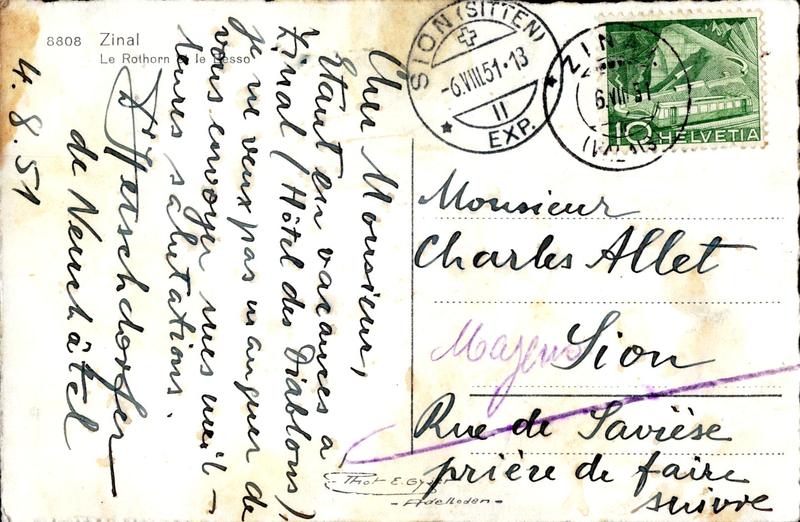 8808 Zinal
Le Rothorn et le Besso
Cher Monsieur,
Etant en vacances a
Zinal (Hôtel des Diablons),
je ne veux pas manquer de
vous envoyer mes meil-
leures salutations.
Dr Herschdorfer
de Neuchâtel
4.8.51
SION (SITTEN)
-6.VIII.51-13
II
EXP.
ZINAL
6.VIII.51
10 HELVETIA
Monsieur
Charles Allet
Sion
Rue de Savièse
prière de faire
suivre
Phot E. Gyger
- Adelboden -